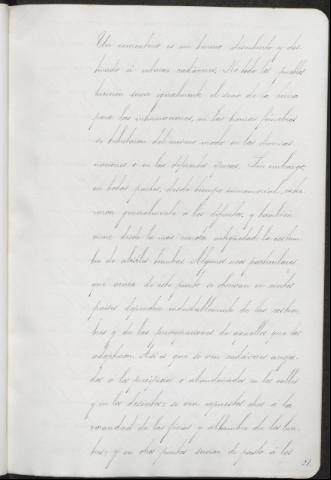 Un cementerio es un terreno descubierto y des-
tinado á enterrar cadáveres. No todos los pueblos
tienen igualmente el seno de la tierra
para las inhumaciones, ni las honras fúnebres
se tributaron del mismo modo en las diversas
naciones ó en las diferentes épocas. Sin embargo,
en todas partes, desde tiempo inmemorial,
generalmente á los difuntos, y también
viene desde la más remota antigüedad la costum-
bre de abrirles tumbas. Algunos usos particulares
que acerca de este punto se observan en ciertos
países dependen indudablemente de las costum-
bres y de las preocupaciones de aquellos que los
adoptaron. Así es que se ven cadáveres arroja-
dos á los precipicios ó abandonados en los valles
y en los desiertos; se ven expuestos otros á la
voracidad de las fieras y alhambre de los bui-
tres; y en otros puntos servían de pasto á los
21.